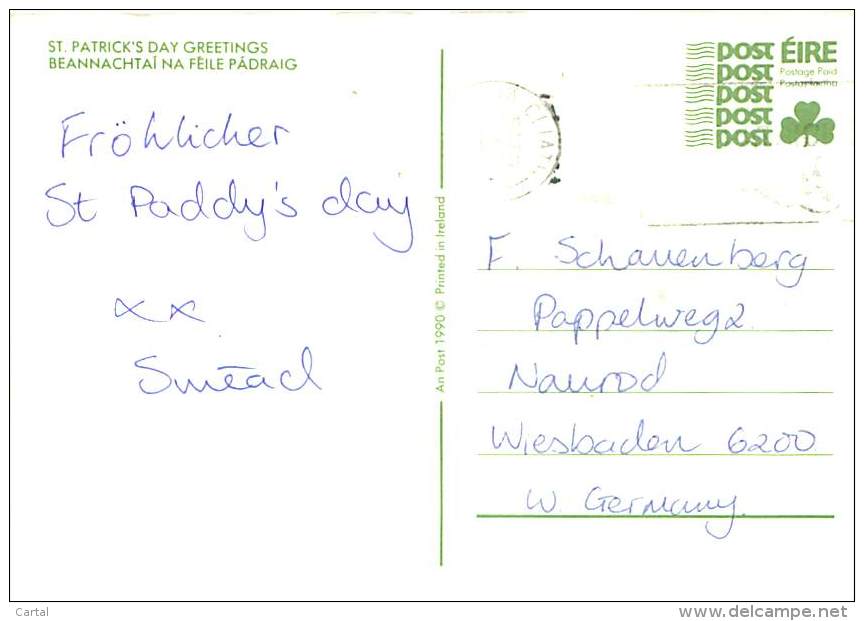 ST. PATRICK'S DAY GREETINGS
BEANNACHTAÍ NA FÉILE PÁDRAIG
Fröhlicher
St Paddy's day
xx
Sinéad
An Post 1990 © Printed in Ireland
post ÉIRE
post Postage Paid
post Postas Íoctha
post
post
F. Schauenberg
Pappelweg 2
Naurod
Wiesbaden 6200
W. Germany.
Cartal
www.delcampe.net